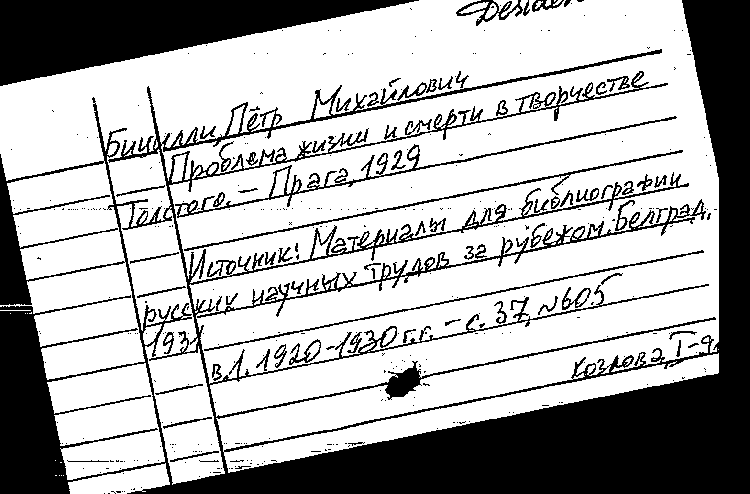 Desiden
Бицилли, Пётр Михайлович
Проблема жизни и смерти в творчестве
Толстого. – Прага, 1929
Источник: Материалы для библиографии
русских научных трудов за рубежом. Белград.
1931
в.1. 1920-1930 г.г. – с. 37, №605
Козлова, I-9